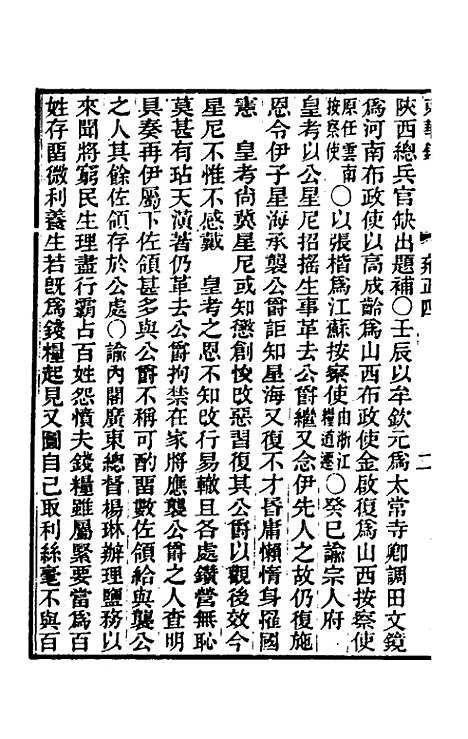 東華錄 雍正四 二
陝西總兵官缺出題補〇壬辰以牟欽元爲太常寺卿調田文鏡
爲河南布政使以高成齡爲山西布政使金啟復爲山西按察使
原任雲南按察使〇以張楷爲江蘇按察使由浙江糧道遷〇癸巳諭宗人府
皇考以公星尼招搖生事革去公爵繼又念伊先人之故仍復施
恩令伊子星海承襲公爵詎知星海又復不才昏庸懶惰身罹國
憲　皇考尚冀星尼或知懲創悛改惡習復其公爵以觀後效今
星尼不惟不感戴　皇考之恩不知改行易轍且各處鑽營無恥
莫甚有玷天潢著仍革去公爵拘禁在家將應襲公爵之人查明
具奏再伊屬下佐領甚多與公爵不稱可酌畱數佐領給與襲公
之人其餘佐領存於公處〇諭內閣廣東總督楊琳辦理鹽務以
來聞將窮民生理盡行霸占百姓怨憤夫錢糧雖屬緊要當爲百
姓存畱微利養生若旣爲錢糧起見又圖自己取利絲毫不與百